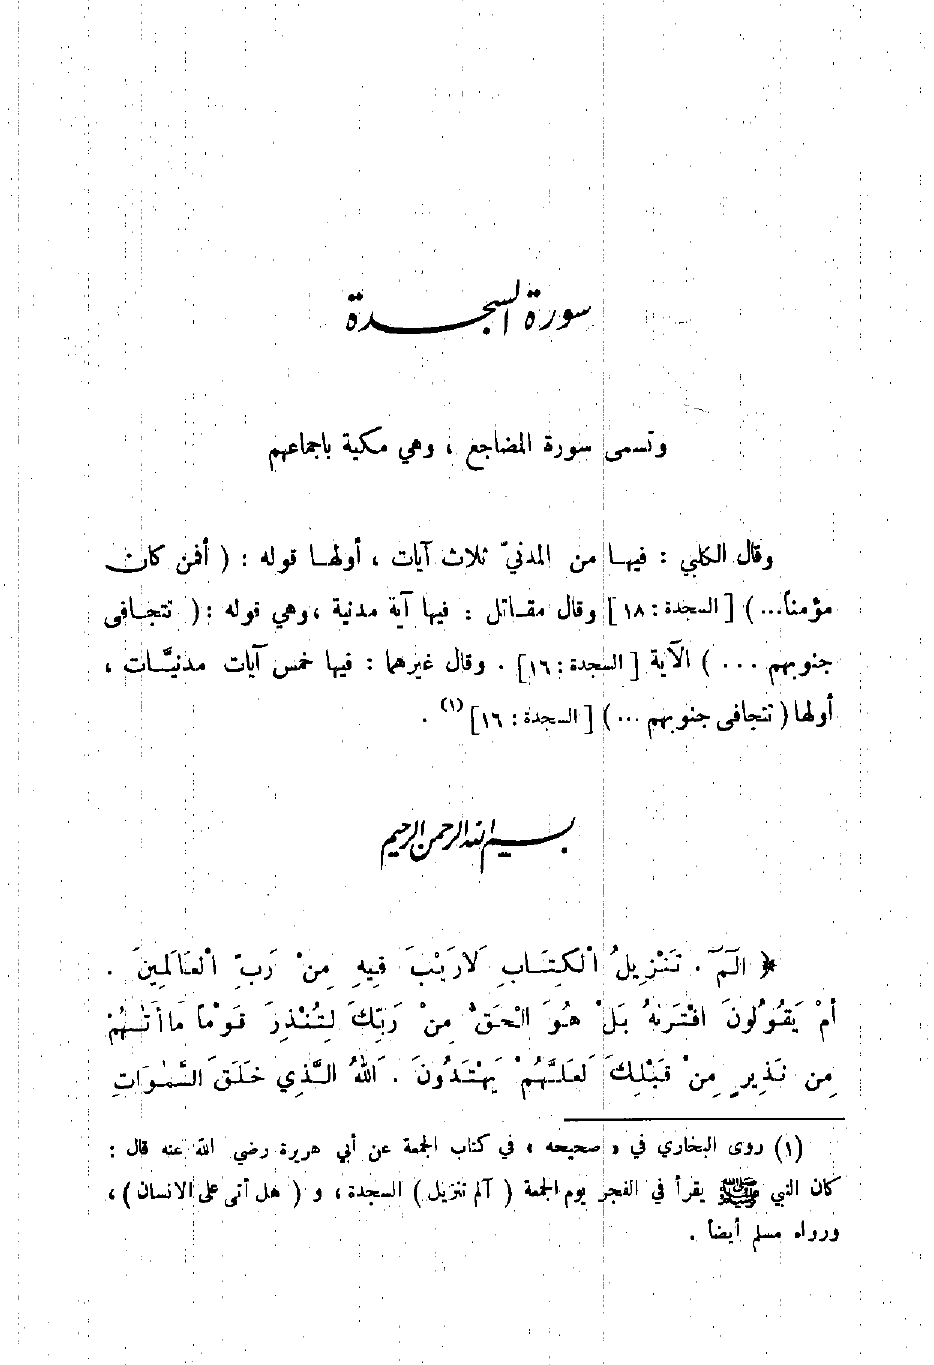 سورة السجدة
وتسمى سورة المضاجع ، وهي مكية باجماعهم
وقال الكلبي : فيها من المدنيّ ثلاث آيات ، أولها قوله : ( أفمن كان
مؤمناً... ) [ السجدة : ١٨ ] وقال مقاتل : فيها آية مدنية ، وهي قوله : ( تتجافى
جنوبهم ... ) الآية [ السجدة : ١٦ ] . وقال غيرهما : فيها خمس آيات مدنيَّات ،
أولها ( تتجافى جنوبهم ... ) [ السجدة : ١٦ ] (١) .
بسم الله الرحمن الرحيم
﴿ الٓمٓ . تَنْزِيلُ الْكِتَابِ لَا رَيْبَ فِيهِ مِنْ رَبِّ الْعَالَمِينَ .
أَمْ يَقُولُونَ افْتَرٰىهُ بَلْ هُوَ الْحَقُّ مِنْ رَبِّكَ لِتُنْذِرَ قَوْمًا مَا أَتٰىهُمْ
مِن نَذِيرٍ مِنْ قَبْلِكَ لَعَلَّهُمْ يَهْتَدُونَ . اَللهُ الَّذِي خَلَقَ السَّمٰوَاتِ
(١) روى البخاري في « صحيحه » في كتاب الجمعة عن أبي هريرة رضي الله عنه قال :
كان النبي ﷺ يقرأ في الفجر يوم الجمعة ( آلم تنزيل ) السجدة ، و ( هل أتى على الانسان ) ،
ورواه مسلم أيضاً .